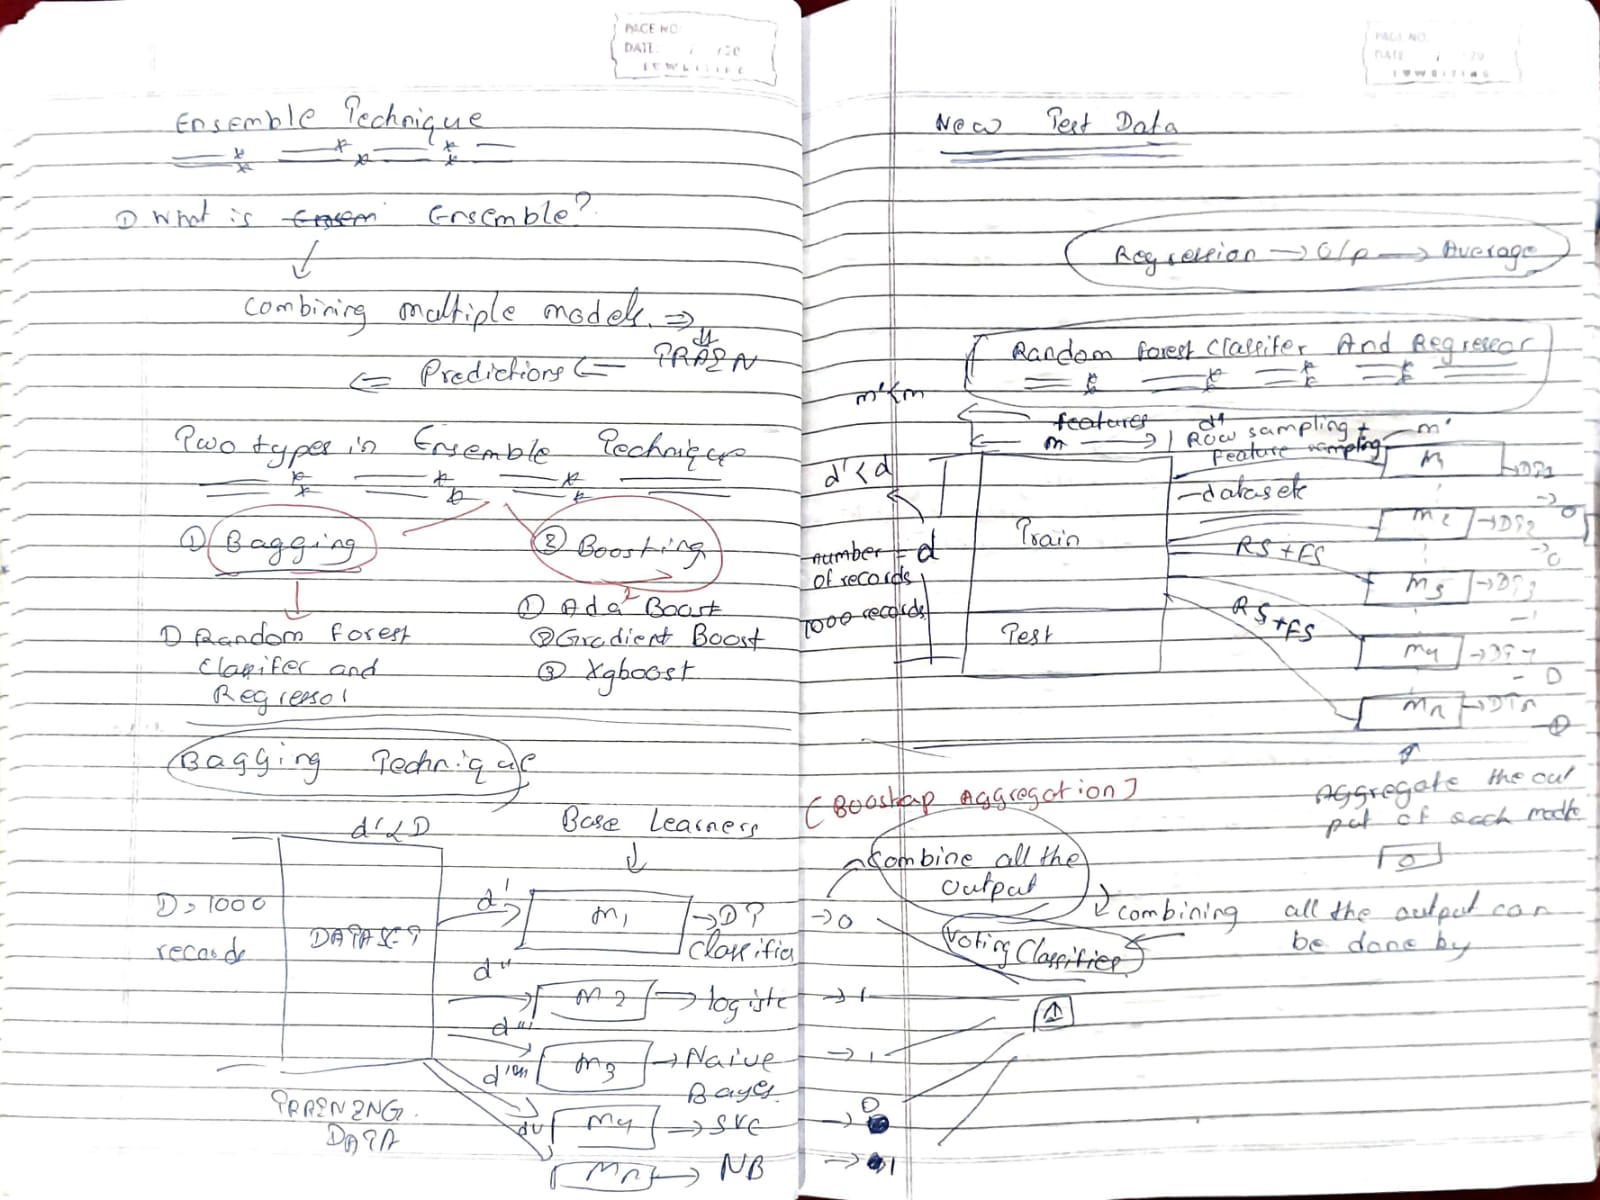 PAGE NO:
DATE: / /20
Ensemble Technique
① What is Ensem Ensemble?
Combining multiple models. ⇒
TRAIN
⇐ Predictions ⇐
Two types in Ensemble Technique
① Bagging
② Boosting
① Random forest
Classifer and
Regressor
① Ada Boost
② Gradient Boost
③ Xgboost
Bagging Technique
d' < D
Base Learners
D = 1000
records
DATASET
TRAINING
DATA
d' M1 → DT
Classifier
d'' M2 → logistc
d''' M3 → Naive
Bayes
M4 → SVC
Mn → NB
PAGE NO.
DATE / /20
New Test Data
Regression → O/p → Average
Random forest Classifer And Regressor
m' < m
features
← m →
Row sampling +
feature sampling
m'
d' < d
number = d
of records
1000 records
Train
Test
datasets
RS + FS
RS + FS
M1 → DT1
→ 0
M2 → DT2
M3 → DT3
M4 → DT4
Mn → DTn
(Boostap Aggregation)
Aggregate the out
put of each
Combine all the
output
combining all the output can
be done by
Voting Classifier
→ 0
→ 1
→ 1
→ 0
→ 1
1